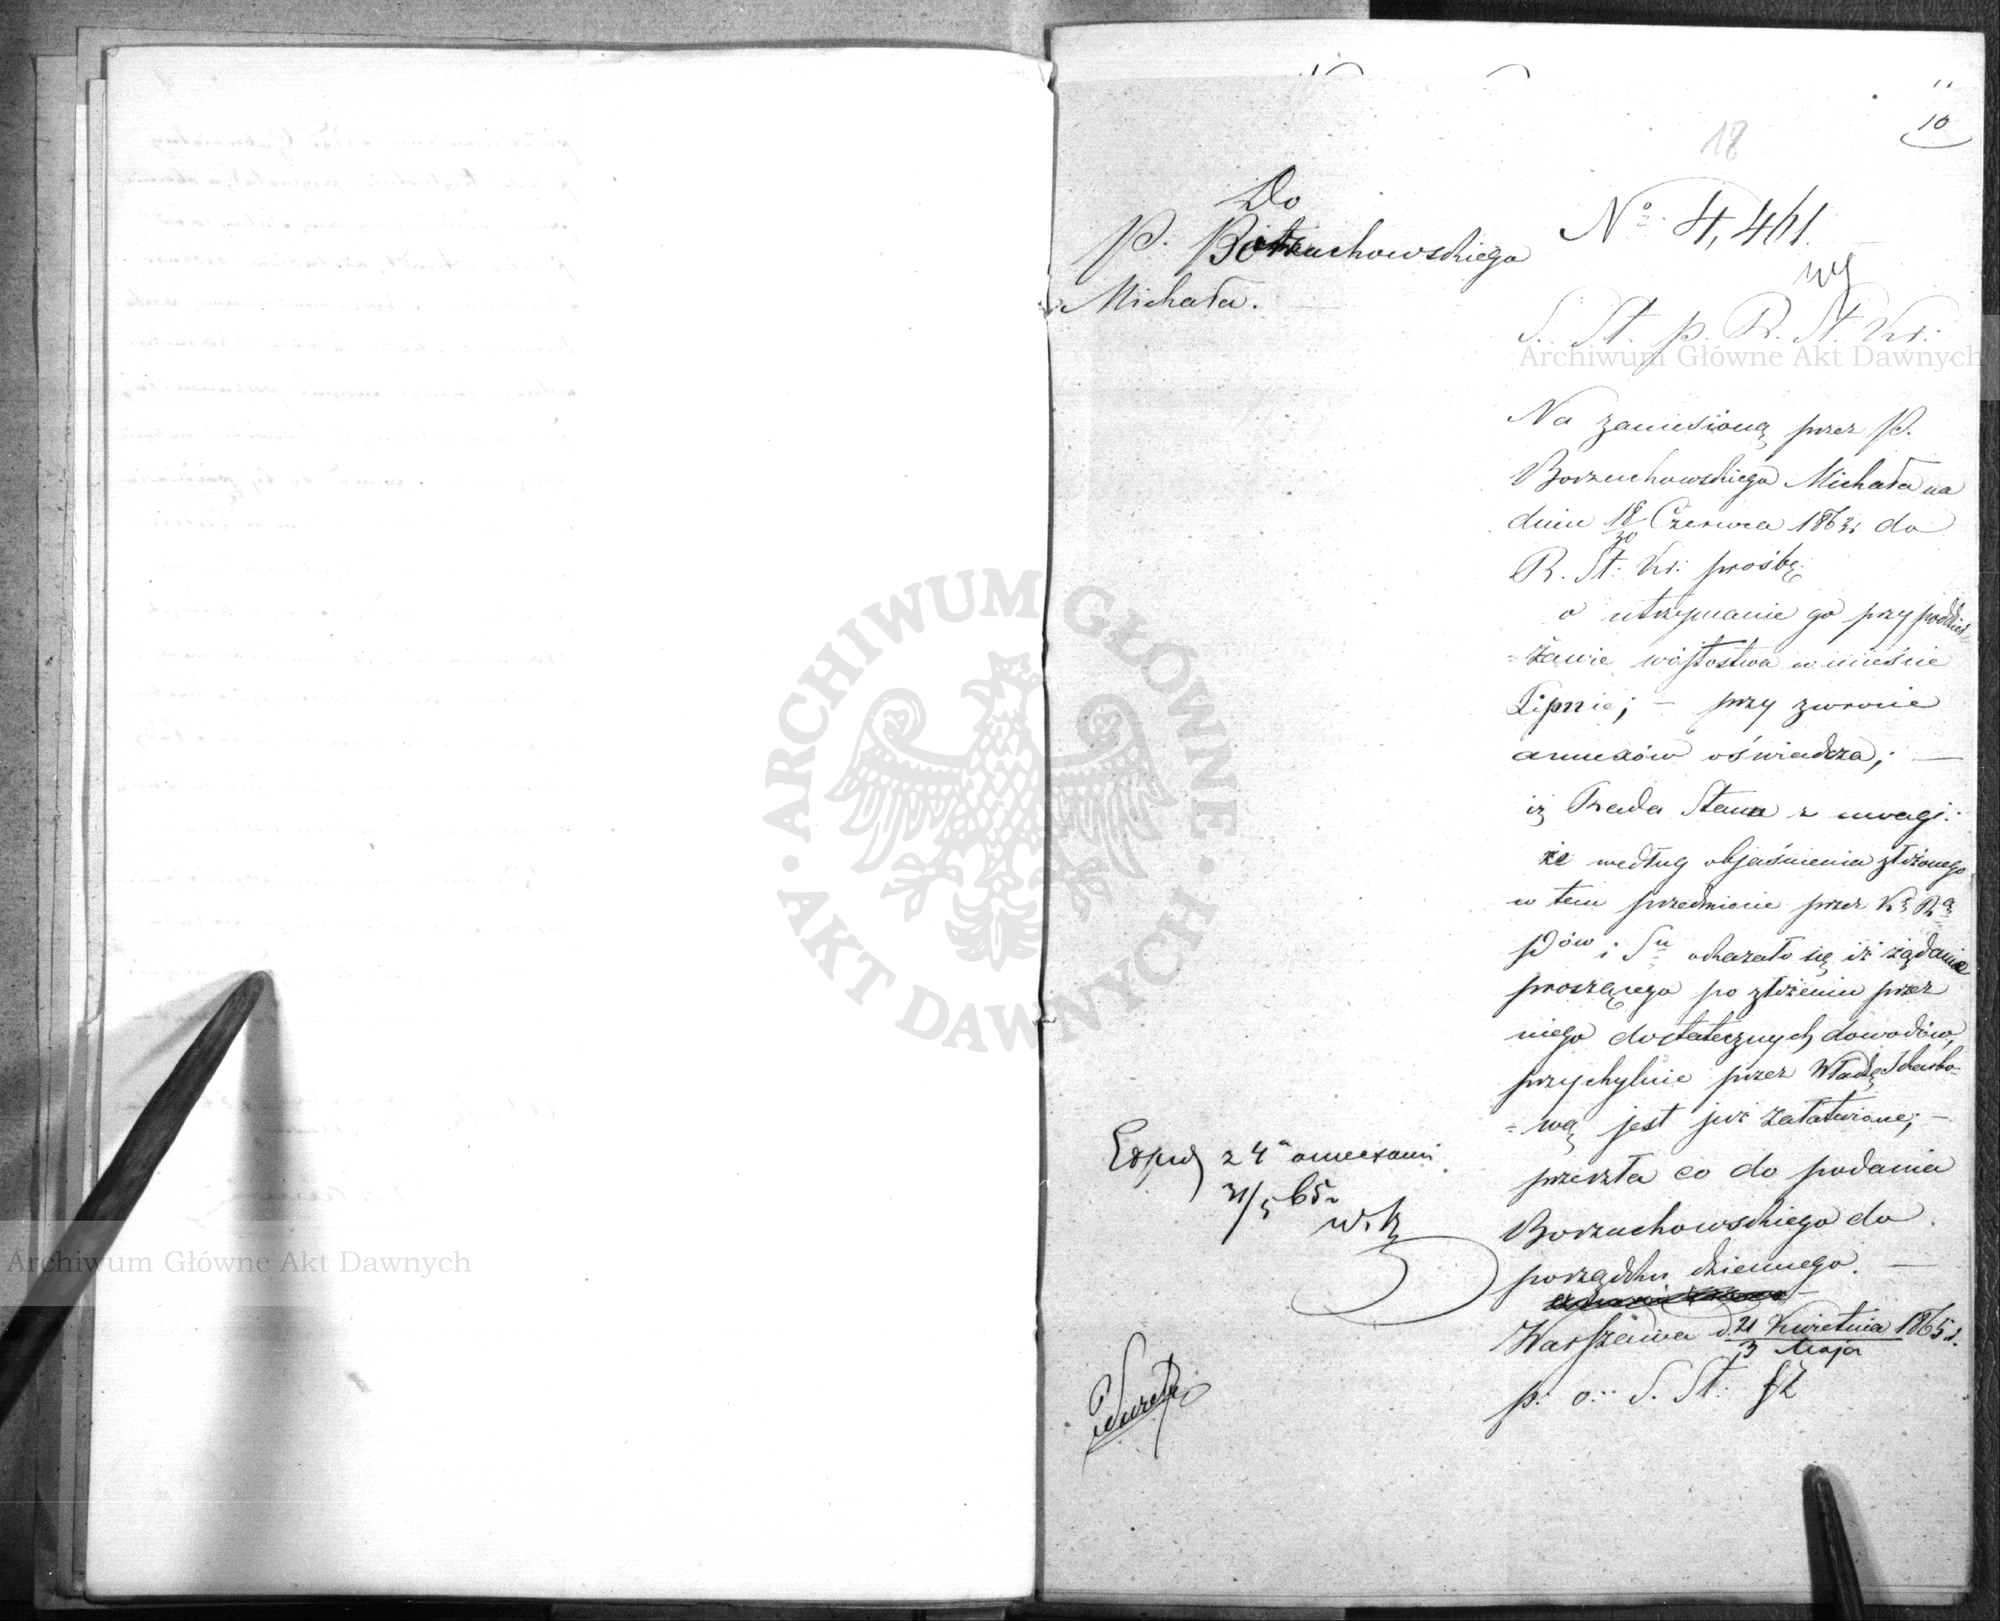 10
18
Do
P. Borzuchowskiego
Michała.
№ 4,461.
S. St. p. R. St. Kr.
Na zaniesioną przez P.
Borzuchowskiego Michała na
dniu 18/30 Czerwca 1863 r. do
R. St. Kr. prośbę.
o utrzymanie go przy poddzier=
=żawie wójtostwa w mieście
Lipnie; — przy zwrocie
annexów oświadcza; —
iż Rada Stanu z uwagi:
że według objaśnienia złożonego
w tem przedmiocie przez K. R.
P. i S. okazało się iż żądanie
proszącego po złożeniu przez
niego dostatecznych dowodów,
przychylnie przez Władzę Skarbo=
=wą jest już załatwione; —
przeszła co do podania
Borzuchowskiego do
porządku dziennego. —
Warszawa d. 21 Kwietnia / 3 Maja 1865 r.
p. o. S. St.
Exped z 4 annexami
31/5 65 r.
Archiwum Główne Akt Dawnych
Archiwum Główne Akt Dawnych
ARCHIWUM GŁÓWNE · AKT DAWNYCH ·